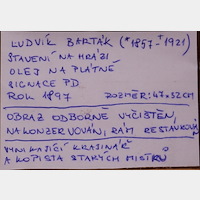 LUDVÍK BARTÁK (*1857-†1921)
STAVENÍ NA HRÁZI
OLEJ NA PLÁTNĚ
SIGNACE PD
ROK 1897 ROZMĚR: 47×32CM
OBRAZ ODBORNĚ VYČIŠTĚN,
NAKONZERVOVÁN, RÁM RESTAUROVÁN
VYNIKAJÍCÍ KRAJINÁŘ
A KOPISTA STARÝCH MISTRŮ